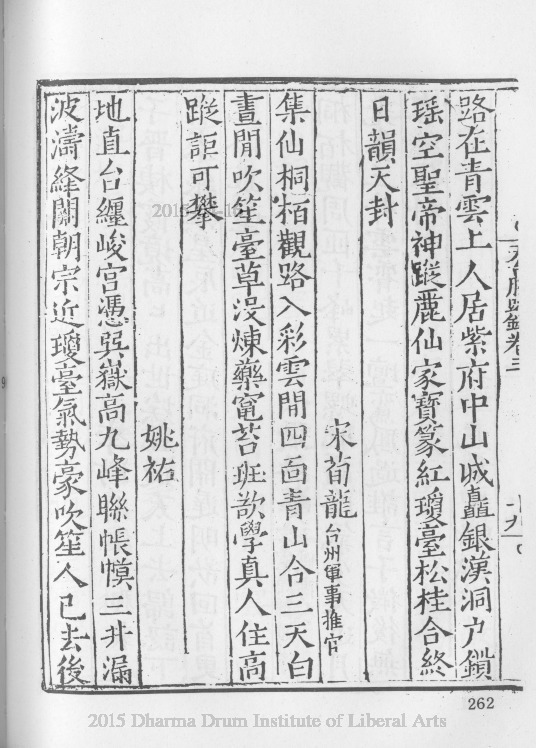 卷三
路在青雲上人居紫府中山城矗銀漢洞戶鎖
瑶空聖帝神蹤麗仙家寶篆紅瓊臺松桂合終
日韻天封
宋荀龍 台州軍事推官
集仙桐栢觀路入彩雲閒四靣青山合三天白
晝閒吹笙臺草没煉藥竈苔斑欲學真人住高
蹤詎可攀
姚祐
地直台纏峻宮憑巽嶽高九峰聯帳幙三井漏
波濤絳闕朝宗近瓊臺氣勢豪吹笙人已去後
262
2015 Dharma Drum Institute of Liberal Arts